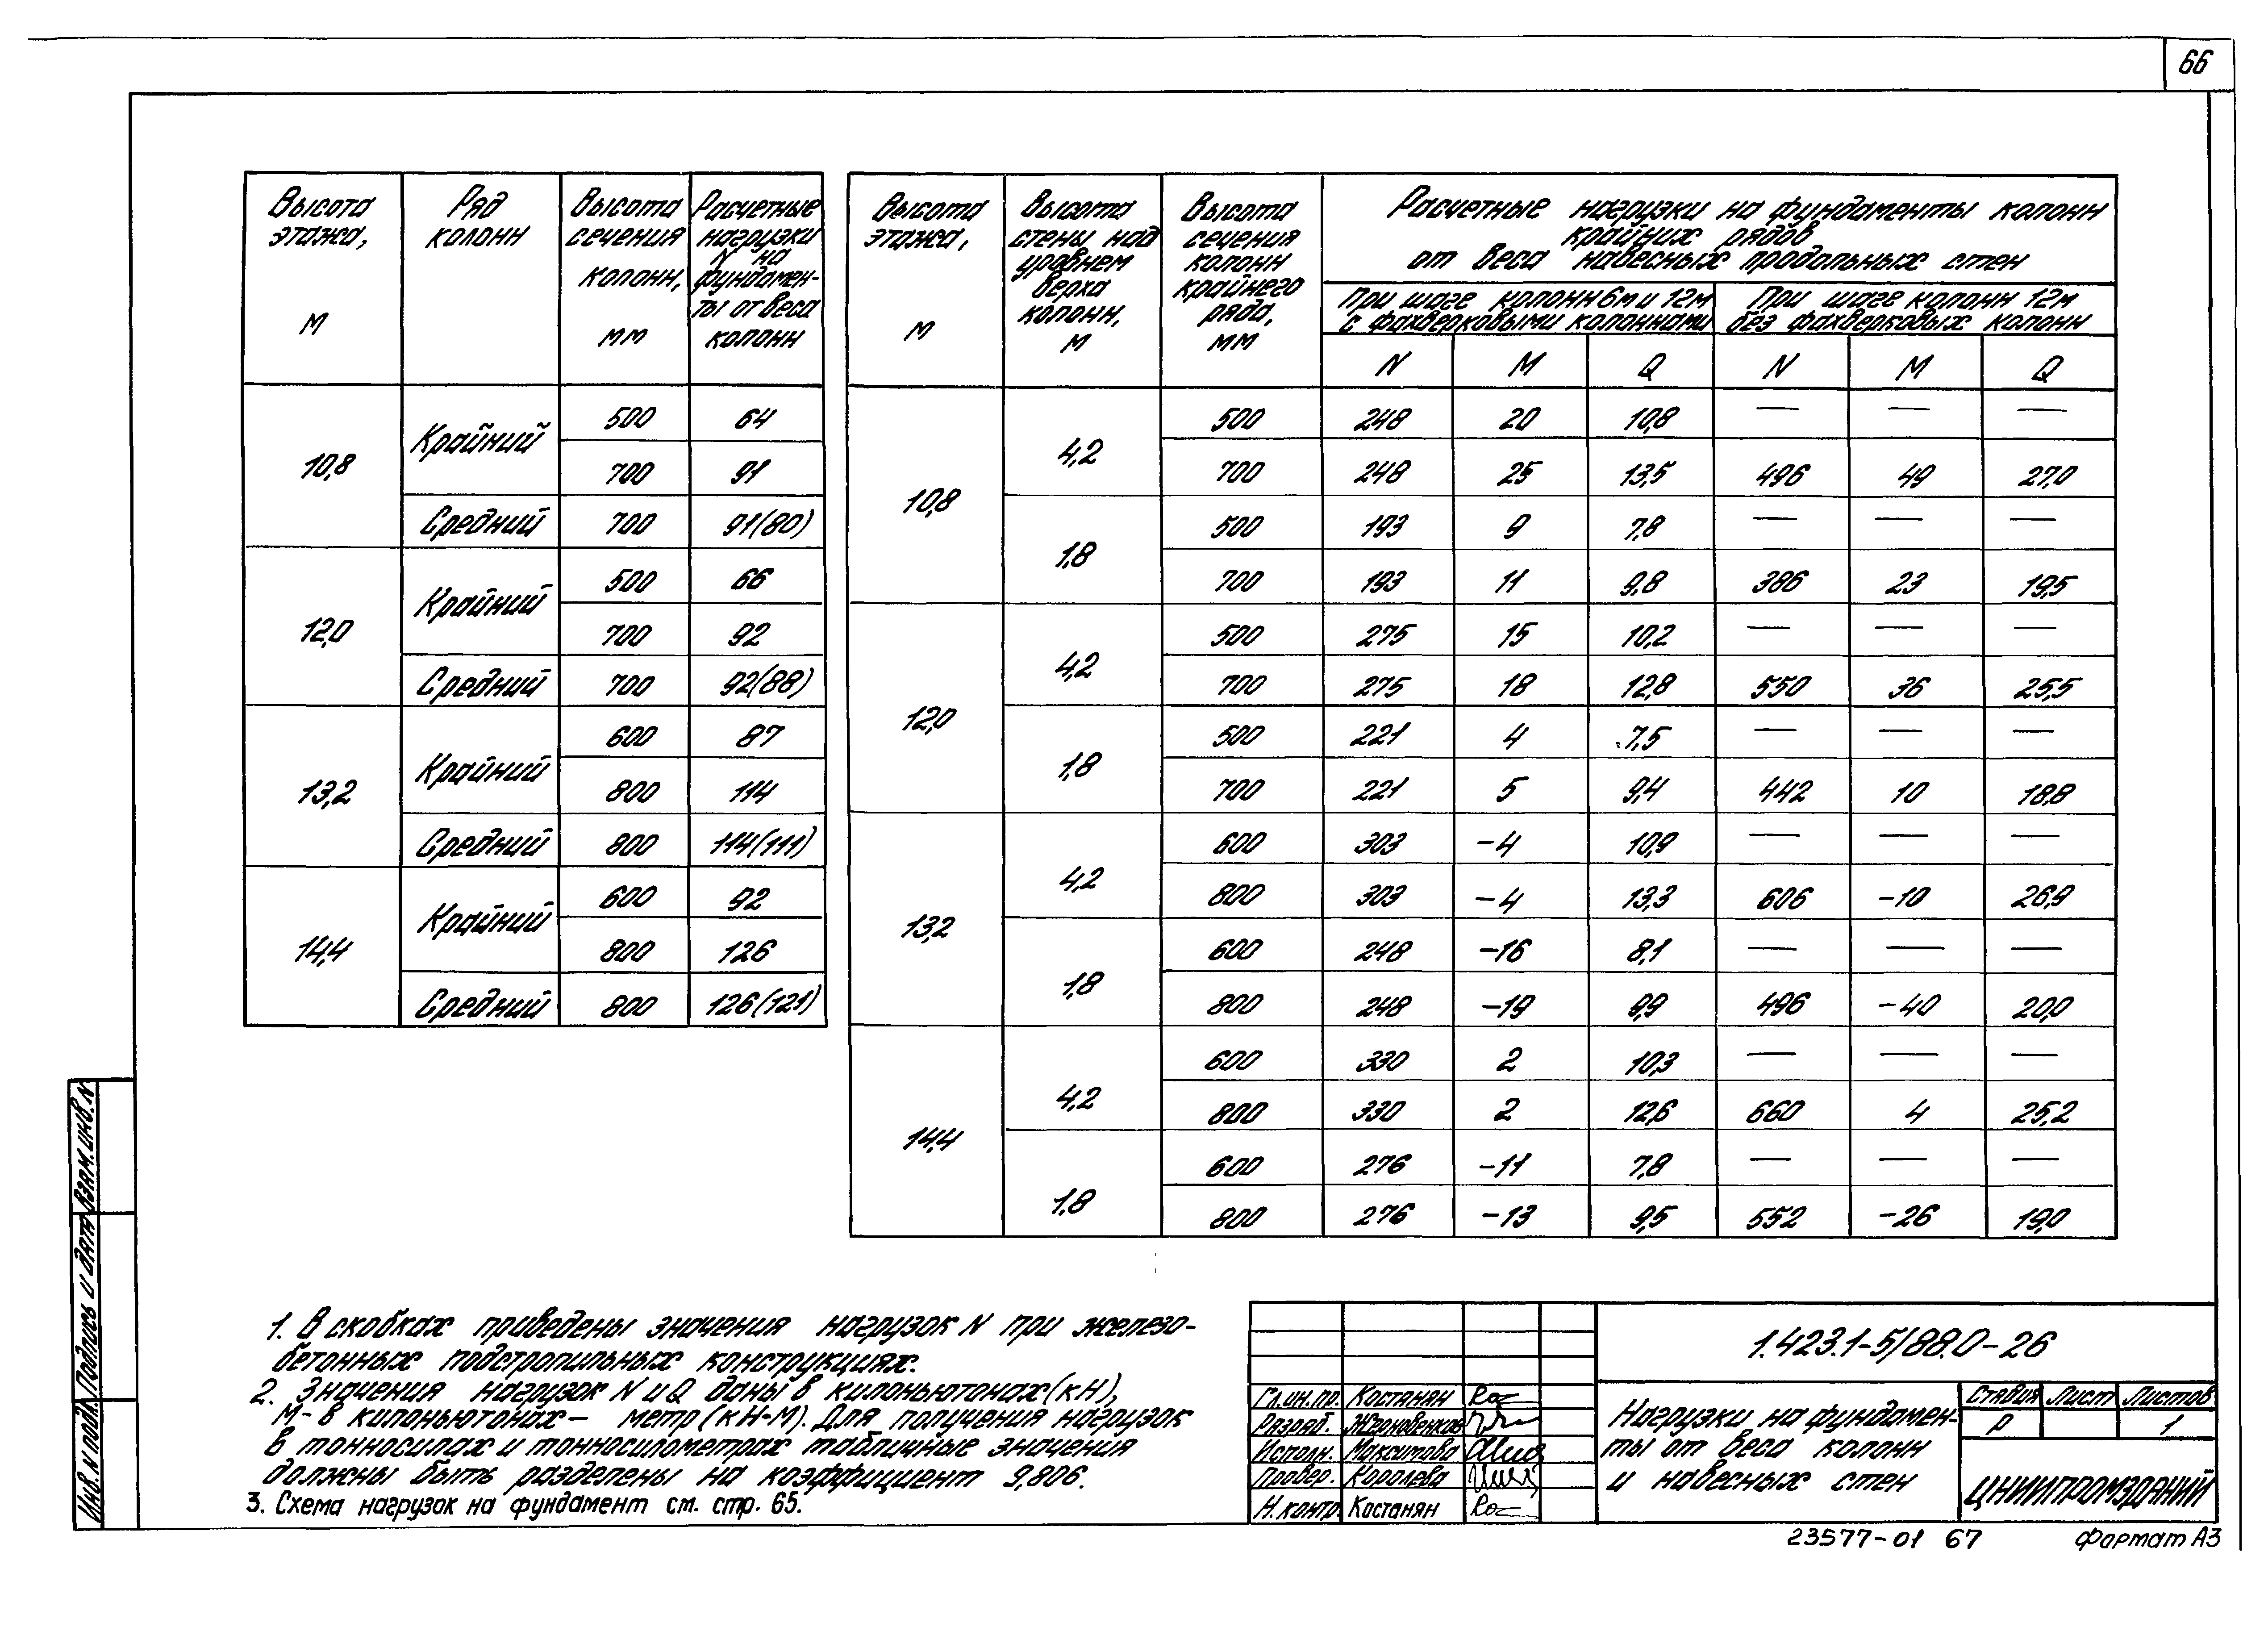 66
Высота этажа, м | Ряд колонн | Высота сечения колонн, мм | Расчетные нагрузки N на фундамен-ты от веса колонн
10,8 | Крайний | 500 | 64
700 | 91
Средний | 700 | 91(80)
12,0 | Крайний | 500 | 66
700 | 92
Средний | 700 | 92(88)
13,2 | Крайний | 600 | 87
800 | 114
Средний | 800 | 114(111)
14,4 | Крайний | 600 | 92
800 | 126
Средний | 800 | 126(121)
Высота этажа, м | Высота стены над уровнем верха колонн, м | Высота сечения колонн крайнего ряда, мм | Расчетные нагрузки на фундаменты колонн крайних рядов от веса навесных продольных стен
При шаге колонн 6м и 12м с фахверковыми колоннами | При шаге колонн 12м без фахверковых колонн
N | M | Q | N | M | Q
10,8 | 4,2 | 500 | 248 | 20 | 10,8 | — | — | —
700 | 248 | 25 | 13,5 | 496 | 49 | 27,0
1,8 | 500 | 193 | 9 | 7,8 | — | — | —
700 | 193 | 11 | 9,8 | 386 | 23 | 19,5
12,0 | 4,2 | 500 | 275 | 15 | 10,2 | — | — | —
700 | 275 | 18 | 12,8 | 550 | 36 | 25,5
1,8 | 500 | 221 | 4 | 7,5 | — | — | —
700 | 221 | 5 | 9,4 | 442 | 10 | 18,8
13,2 | 4,2 | 600 | 303 | -4 | 10,9 | — | — | —
800 | 303 | -4 | 13,3 | 606 | -10 | 26,9
1,8 | 600 | 248 | -16 | 8,1 | — | — | —
800 | 248 | -19 | 9,9 | 496 | -40 | 20,0
14,4 | 4,2 | 600 | 330 | 2 | 10,3 | — | — | —
800 | 330 | 2 | 12,6 | 660 | 4 | 25,2
1,8 | 600 | 276 | -11 | 7,8 | — | — | —
800 | 276 | -13 | 9,5 | 552 | -26 | 19,0
1. В скобках приведены значения нагрузок N при железо-
бетонных подстропильных конструкциях.
2. Значения нагрузок N и Q даны в килоньютонах (кН),
М - в килоньютонах - метр (кН-м). Для получения нагрузок
в тонносилах и тонносилометрах табличные значения
должны быть разделены на коэффициент 9,806.
3. Схема нагрузок на фундамент см. стр. 65.
Инв. N подл. | Подпись и дата | Взам. инв. N
Гл.ин.пр. | Костанян
Разраб. | Жерновенков
Исполн. | Максимова
Провер. | Королева
Н.контр. | Костанян
1.423.1-5/88.0-26
Нагрузки на фундамен-
ты от веса колонн
и навесных стен
Стадия | Лист | Листов
Р | 1
ЦНИИПРОМЗДАНИЙ
23577-01 67
Формат А3